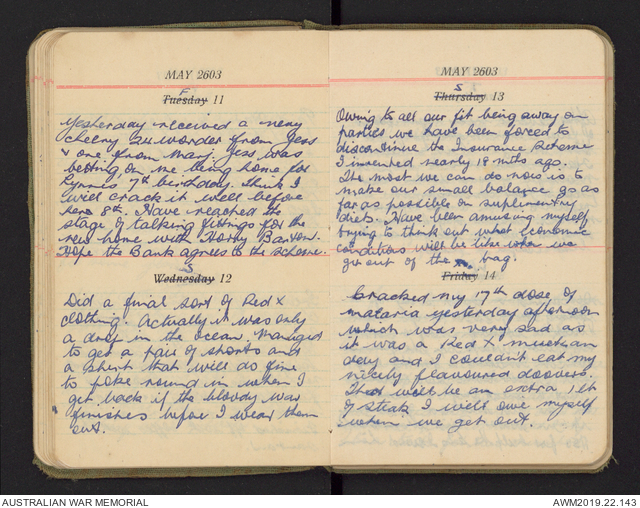 MAY 2603
F
Tuesday 11
Yesterday received a very
cheery 24 worder from Jess
& one from Marj. Jess was
betting on me being home for
Lynnes 7th birthday. Think I
will crack it well before
her 8th. Have reached the
stage of talking fittings for the
new home with Horry Barton.
Hope the Bank agrees to the scheme.
S
Wednesday 12
Did a final sort of Red X
clothing. Actually it was only
a drop in the ocean. Managed
to get a pair of shorts and
a shirt that will do fine
to poke round in when I
get back if the bloody war
finishes before I wear them
out.
MAY 2603
S
Thursday 13
Owing to all our fit being away on
parties we have been forced to
discontinue the Insurance Scheme
I invented nearly 18 mths ago.
The most we can do now is to
make our small balance go as
far as possible on suplimentry
diets. Have been amusing myself
trying to think out what economic
conditions will be like when we
get out of the bag.
Friday 14
Cracked my 17th dose of
malaria yesterday afternoon
which was very sad as
it was a Red X
day and I couldn't eat my
nicely flavoured doovers.
That will be an extra 1 lb
of steak I will owe myself
when we get out.
AUSTRALIAN WAR MEMORIAL
AWM2019.22.143